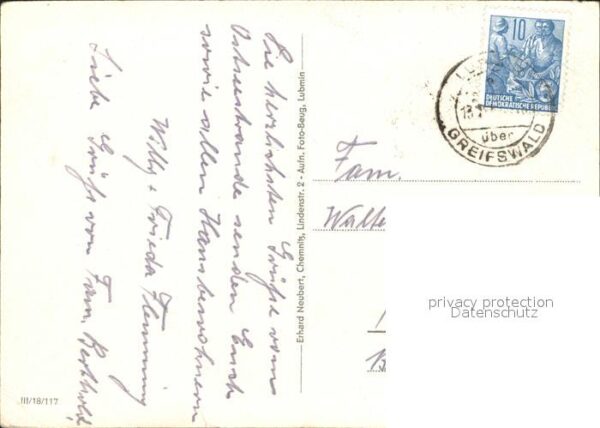 Die herzlichsten Grüße vom
Ostseestrande senden Euch
sowie allen Hausbewohnern
Willy + Frieda Flemming
Liebe Grüße von Fam. Berthold
III/18/117
Erhard Neubert, Chemnitz, Lindenstr. 2 - Aufn. Foto-Beug, Lubmin
10
DEUTSCHE
DEMOKRATISCHE REPUBLIK
über
GREIFSWALD
Fam.
Walte
privacy protection
Datenschutz